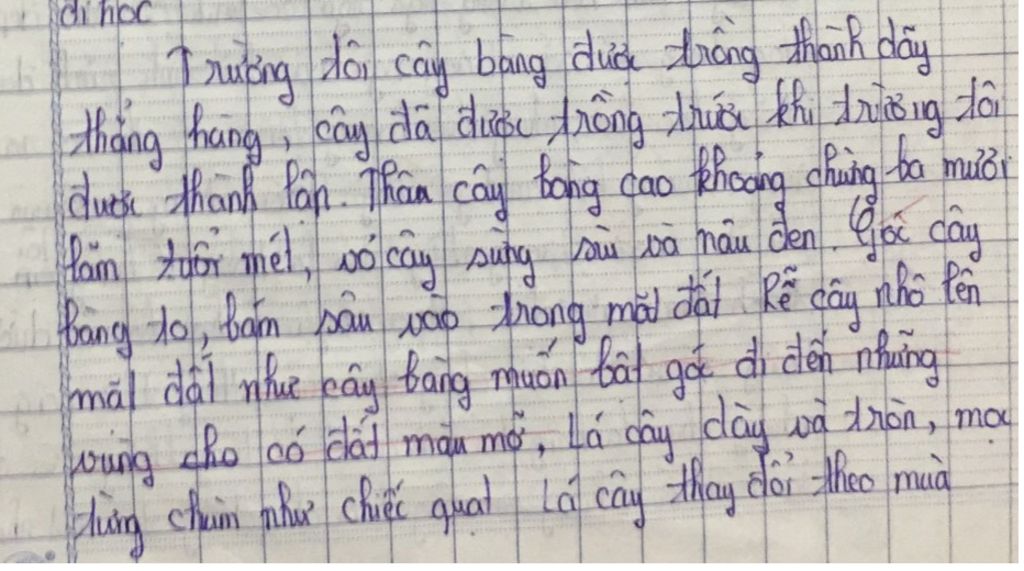 đi học
Trường tôi cây bàng được trồng thành dãy
thẳng hàng, cây đã được trồng trước khi trường tôi
được thành lập. Thân cây bàng cao khoảng chừng ba mươi
lăm tuổi mét, vỏ cây sùng sùi và màu đen. Gốc cây
bàng to, bám sâu vào trong mặt đất Rễ cây nhô lên
mặt đất như cây bàng muốn bật gốc đi đến những
vùng cho có đất màu mỡ, Lá cây dày và tròn, mọc
từng chùm như chiếc quạt Lá cây thay đổi theo mùa